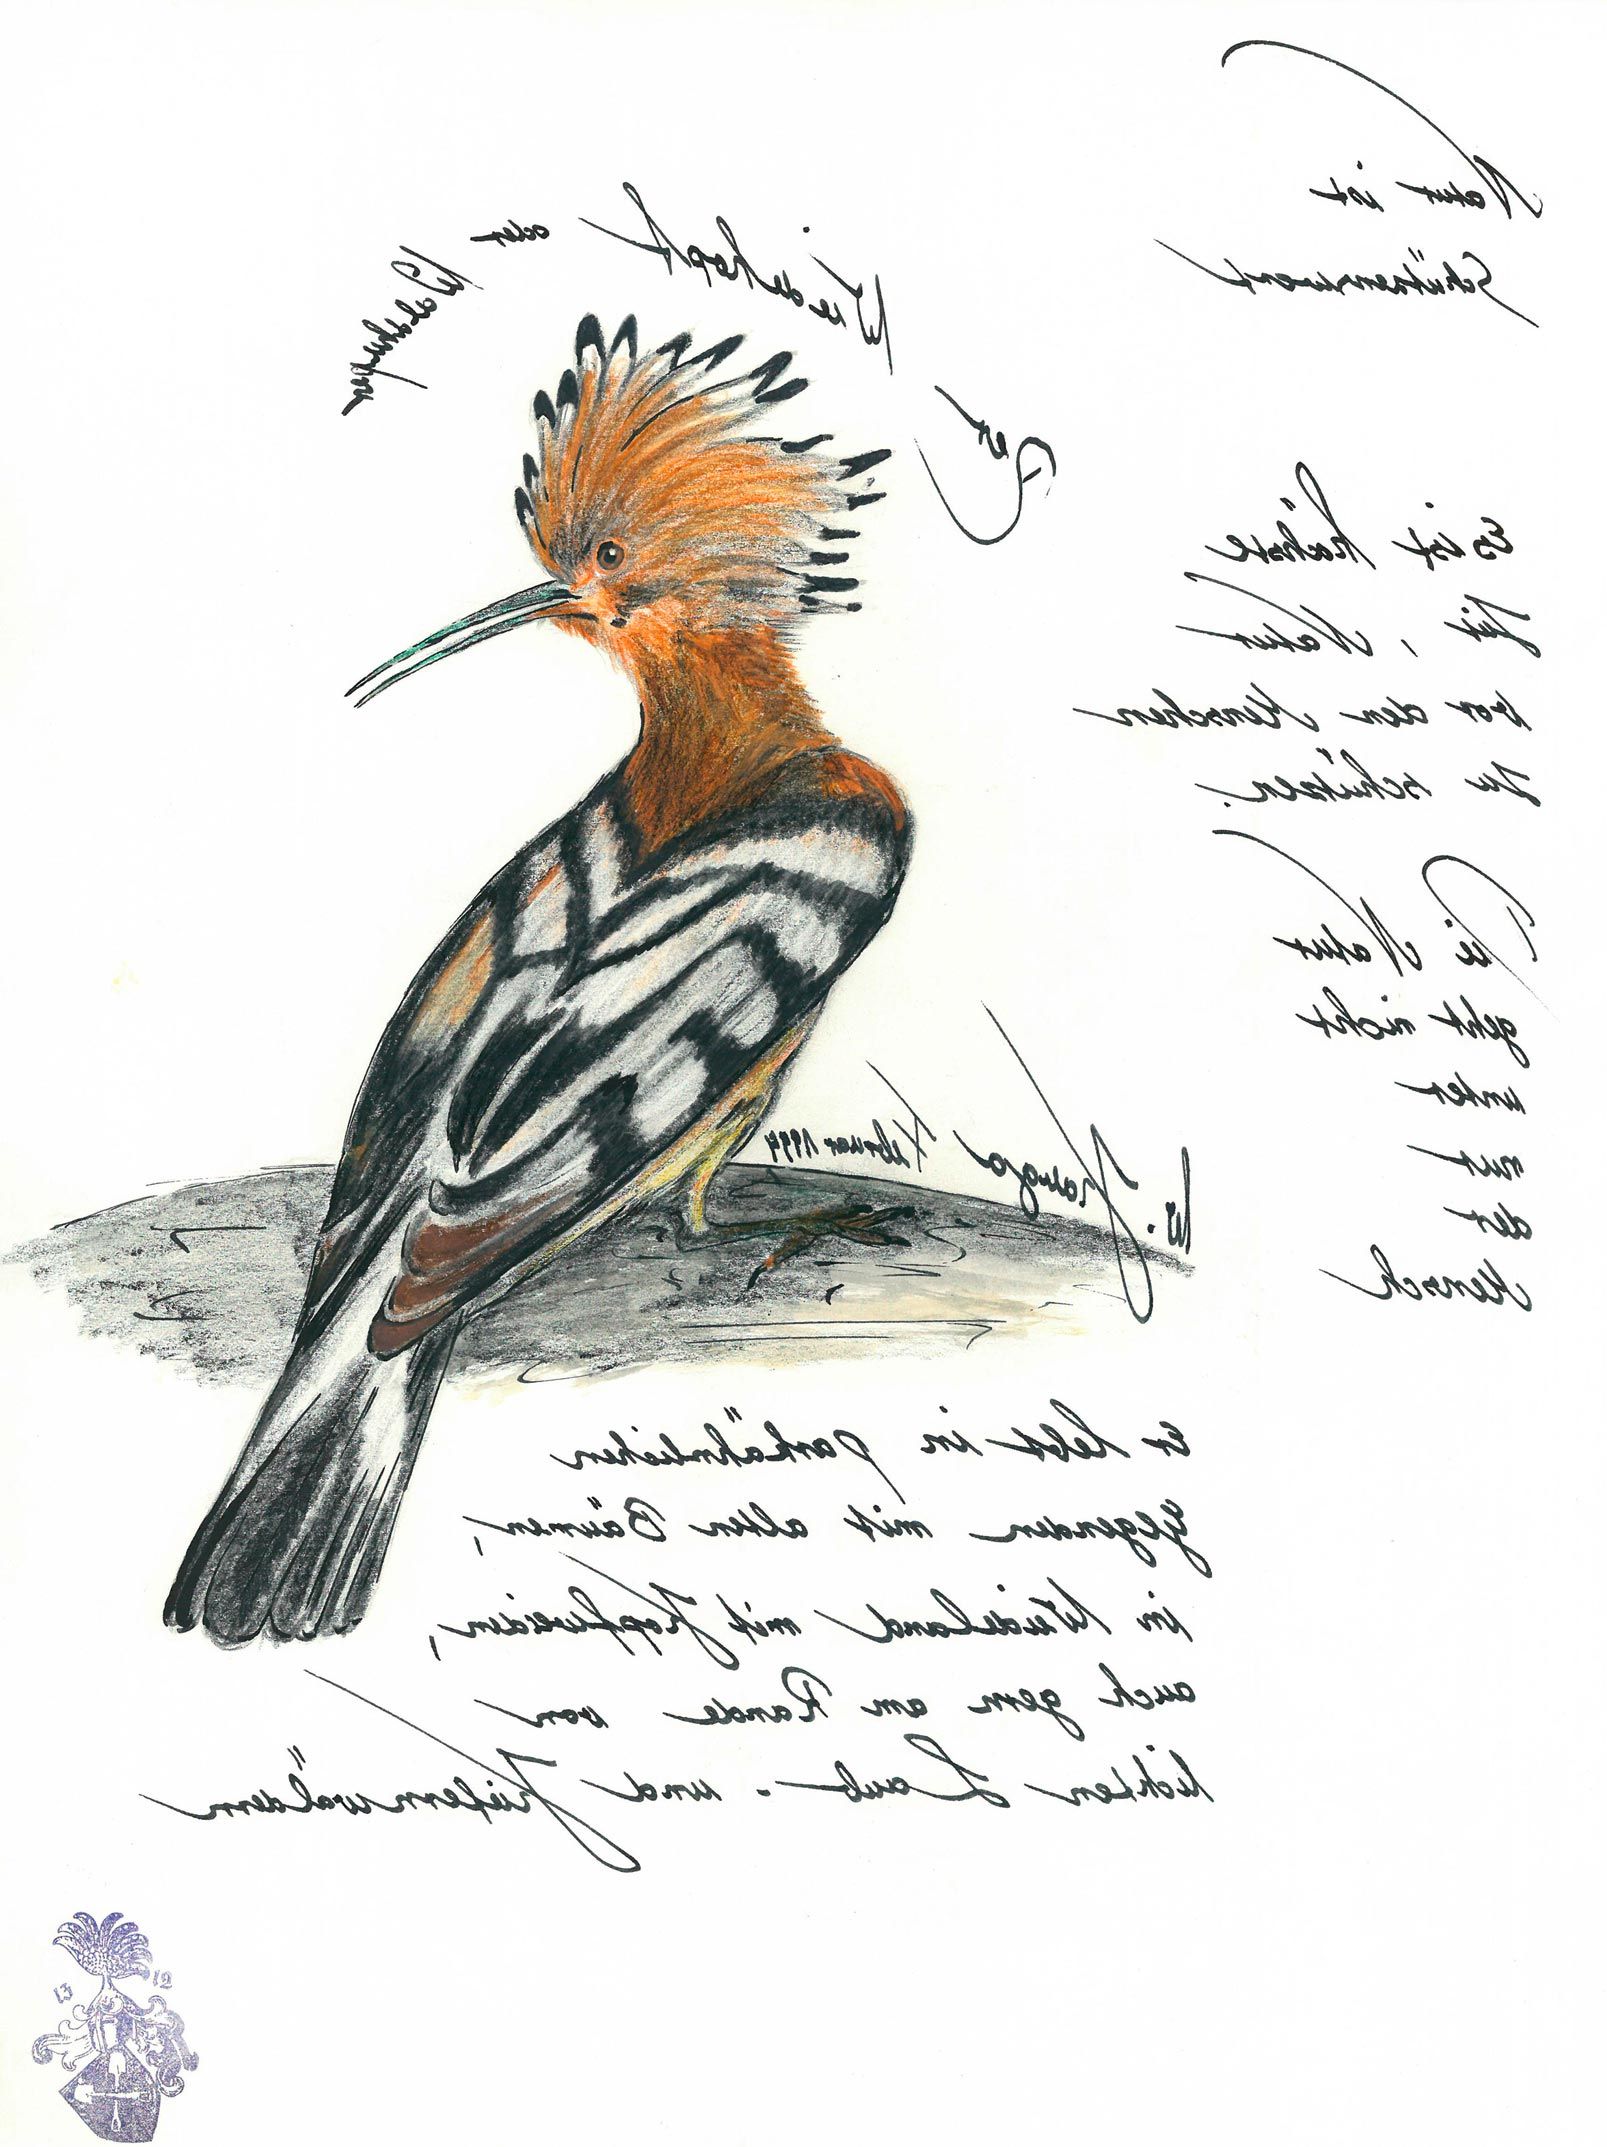 Natur ist
Schützenswert
Der
Wiedehopf
oder
Es ist höchste
Zeit, Natur
vor den Menschen
zu schützen!
Die Natur
geht nicht
unter
nur
der
Mensch
W. Februar 1994
Er lebt in parkähnlichen
Gegenden mit alten Bäumen,
in Weideland mit Kopfweiden,
auch gern am Rande von
lichten Laub- und Kiefernwäldern